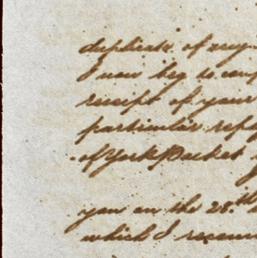 duplicate of my
I now beg to
receipt of your
particular
of York Packet
you on the 28th
which I